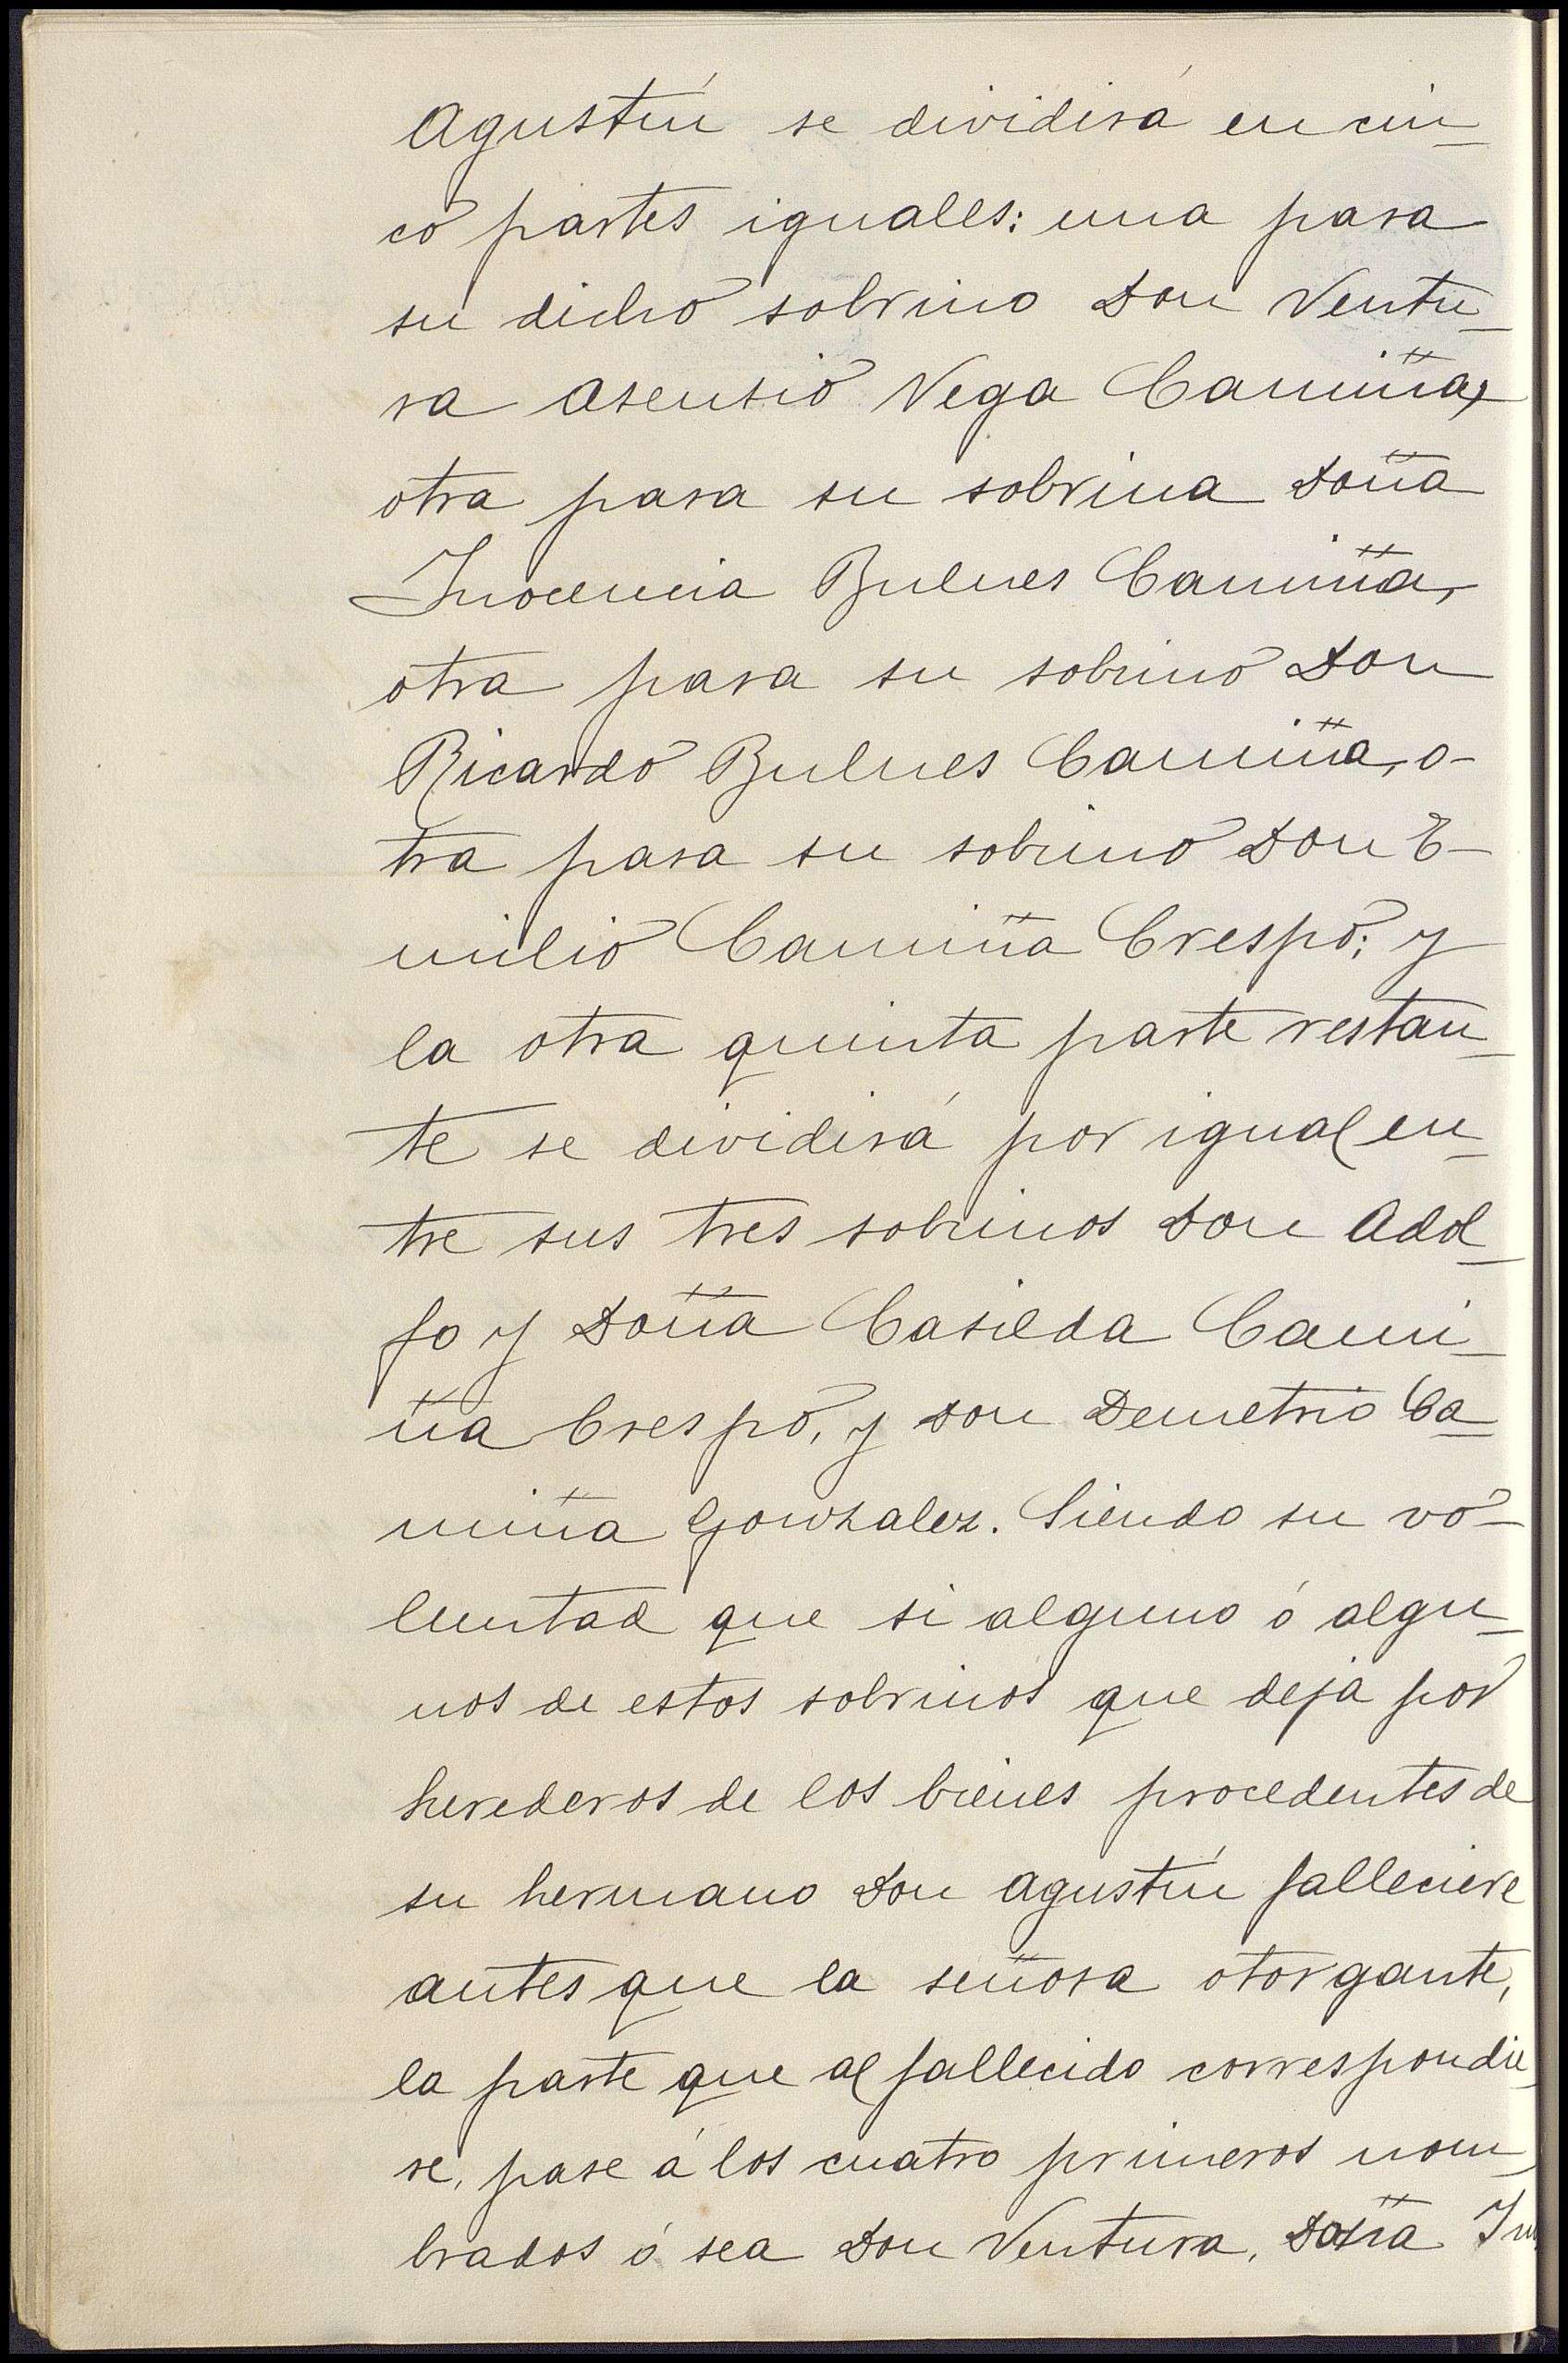 Agustín se dividirá en cin-
co partes iguales: una para
su dicho sobrino Don Ventu-
ra Asensio Vega Camiña,
otra para su sobrina Doña
Inocencia Bulnes Camiña,
otra para su sobrino Don
Ricardo Bulnes Camiña, o-
tra para su sobrino Don E-
milio Camiña Crespo; y
la otra quinta parte restan-
te se dividirá por igual en-
tre sus tres sobrinos Don Adol-
fo y Doña Casilda Cami-
ña Crespo, y Don Demetrio Ca-
miña Gonzalez. Siendo su vo-
luntad que si alguno ó algu-
nos de estos sobrinos que deja por
herederos de los bienes procedentes de
su hermano Don Agustín falleciere
antes que la señora otorgante,
la parte que al fallecido correspondie-
re, pase á los cuatro primeros nom-
brados ó sea Don Ventura, Doña In